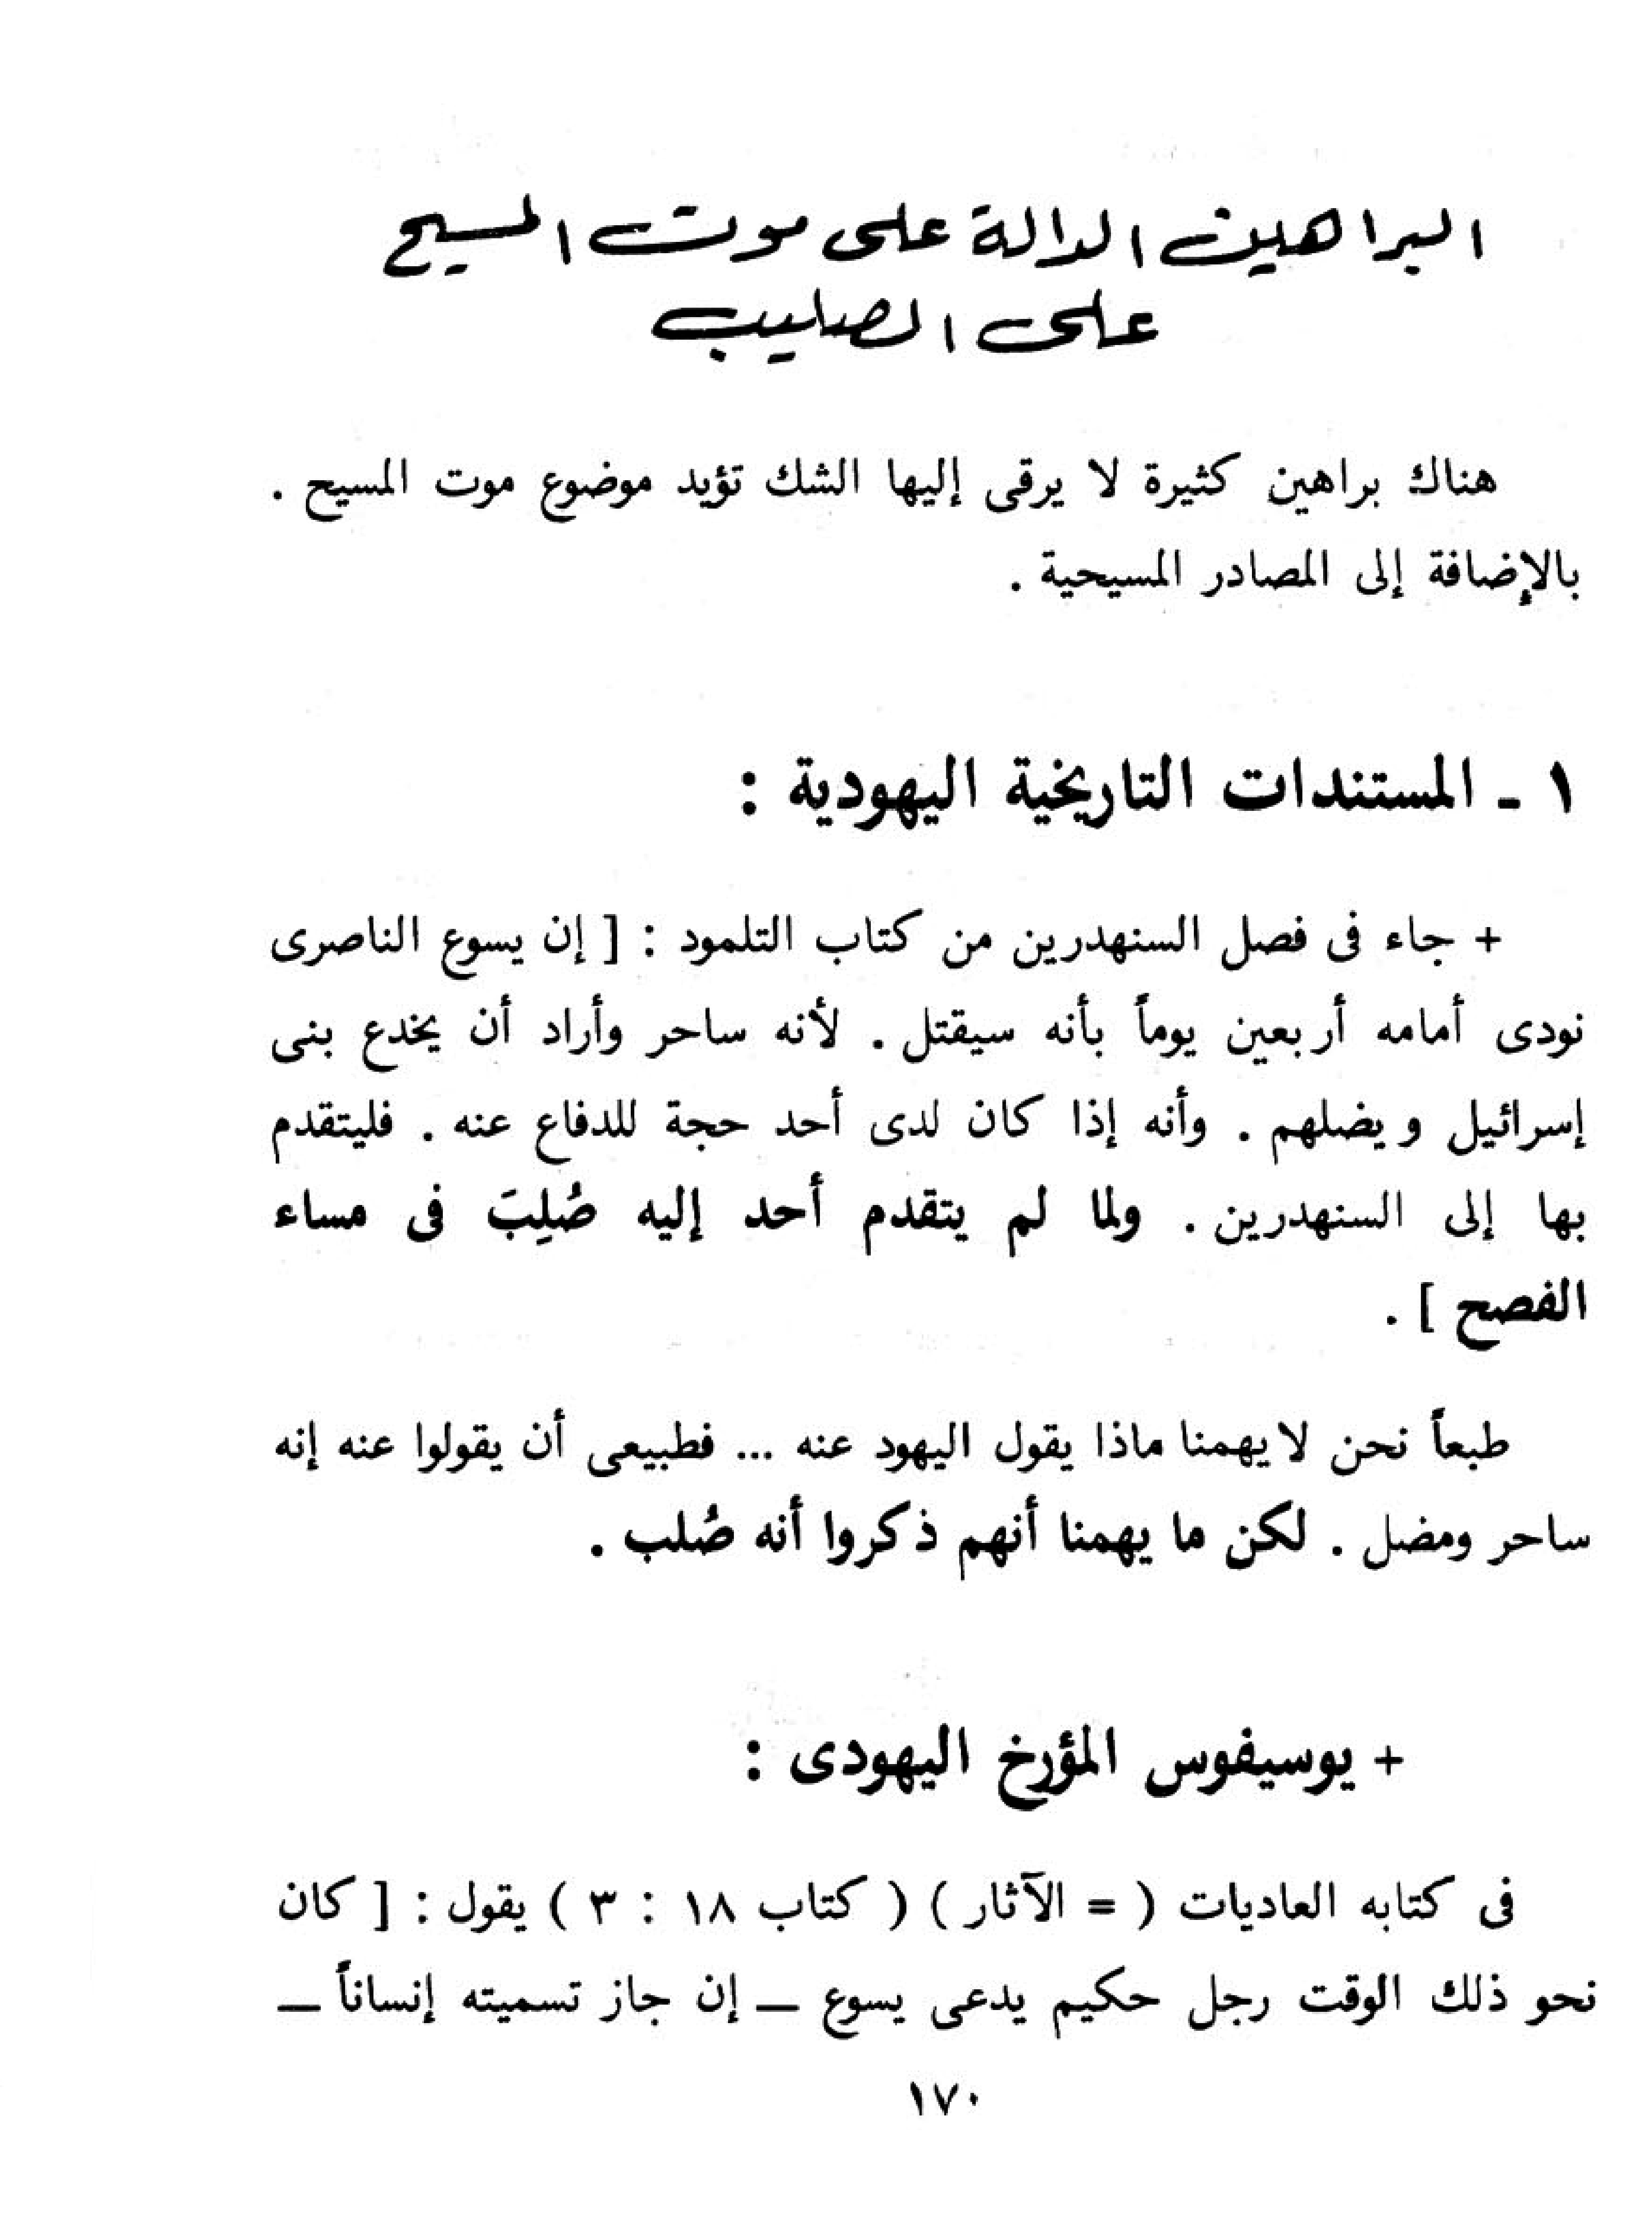 البراهين الدالة على موت المسيح
على الصليب
هناك براهين كثيرة لا يرقى إليها الشك تؤيد موضوع موت المسيح .
بالإضافة إلى المصادر المسيحية .
١ ـ المستندات التاريخية اليهودية :
+ جاء فى فصل السنهدرين من كتاب التلمود : [ إن يسوع الناصرى
نودى أمامه أربعين يوماً بأنه سيقتل . لأنه ساحر وأراد أن يخدع بنى
إسرائيل ويضلهم . وأنه إذا كان لدى أحد حجة للدفاع عنه . فليتقدم
بها إلى السنهدرين . ولما لم يتقدم أحد إليه صُلِبَ فى مساء
الفصح ] .
طبعاً نحن لا يهمنا ماذا يقول اليهود عنه ... فطبيعى أن يقولوا عنه إنه
ساحر ومضل . لكن ما يهمنا أنهم ذكروا أنه صُلب .
+ يوسيفوس المؤرخ اليهودى :
فى كتابه العاديات ( = الآثار ) ( كتاب ١٨ : ٣ ) يقول : [ كان
نحو ذلك الوقت رجل حكيم يدعى يسوع ــ إن جاز تسميته إنساناً ــ
١٧٠